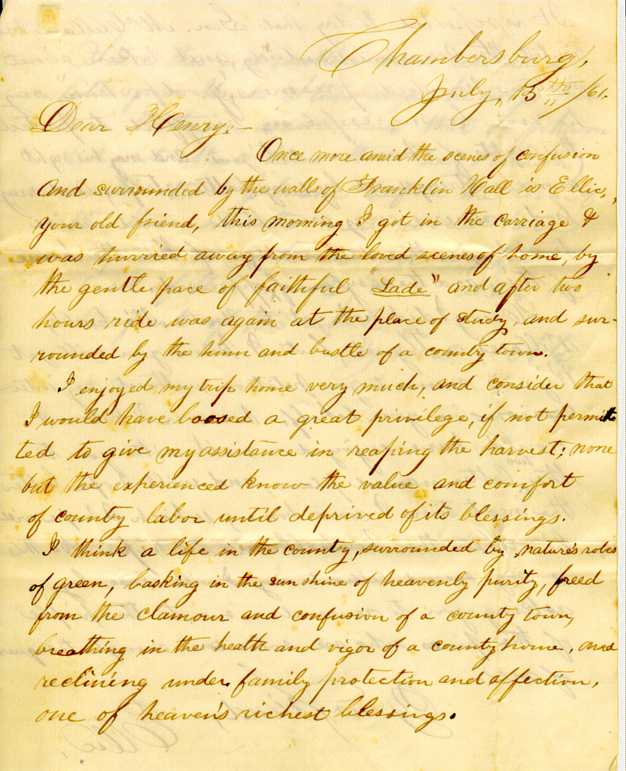 Chambersburg,
July, 15th /61.
Dear Henry,-
Once more amid the scenes of confusion
and surrounded by the walls of Franklin Hall is Ellie,
your old friend, this morning I got in the carriage &
was hurried away from the loved scenes of home, by
the gentle pace of faithful "Lade" and after two
hours ride was again at the place of study, and sur-
rounded by the humm and bustle of a county town.
I enjoyed my trip home very much, and consider that
I would have loosed a great privilege, if not permit
ted to give my assistance in reaping the harvest; none
but the experienced know the value and comfort
of county labor until deprived of its blessings.
I think a life in the county, surrounded by nature's robes
of green, basking in the sun shine of heavenly purity, freed
from the clamour and confusion of a county town,
breathing in the health and vigor of a county home, and
reclining under family protection and affection,
one of heaven's richest blessings.